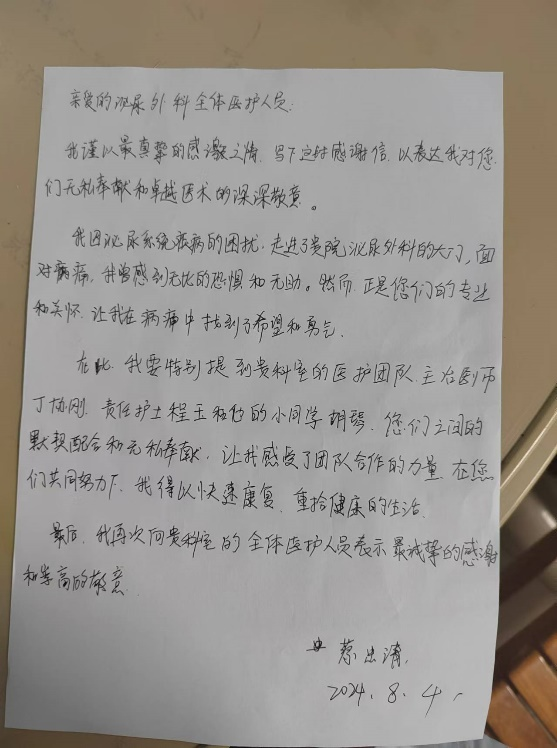 亲爱的泌尿外科全体医护人员:
我谨以最真挚的感激之情,写下这封感谢信,以表达我对您
们无私奉献和卓越医术的深深敬意。
我因泌尿系统疾病的困扰,走进了贵院泌尿外科的大门,面
对病痛,我曾感到无比的恐惧和无助。然而,正是您们的专业
和关怀,让我在病痛中找到了希望和勇气。
在此,我要特别提到贵科室的医护团队,主治医师
丁协刚,责任护士程玉和他的小同学胡琴,您们之间的
默契配合和无私奉献,让我感受了团队合作的力量,在您
们共同努力下,我得以快速康复,重拾健康的生活。
最后,我再次向贵科室的全体医护人员表示最诚挚的感谢
和崇高的敬意
蔡出清
2024.8.4